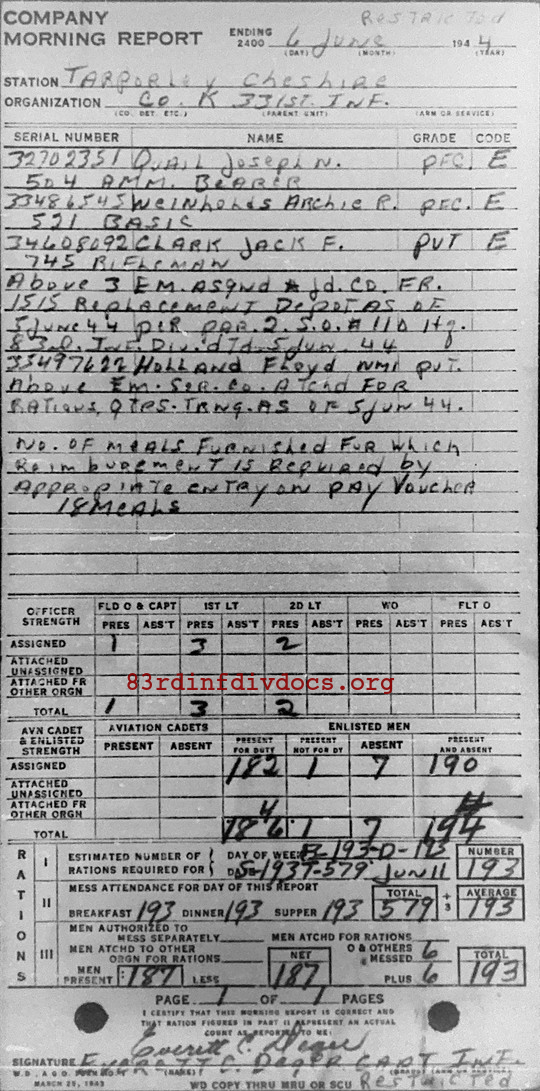 Restricted
COMPANY
MORNING REPORT ENDING 2400 6 June 1944
(DAY) (MONTH) (YEAR)
STATION Tarporley Cheshire
ORGANIZATION Co. K 331st. Inf.
(CO. DET. ETC.) (PARENT UNIT) (ARM OR SERVICE)
SERIAL NUMBER NAME GRADE CODE
32702351 Quail Joseph N. PFC. E
504 Amm. Bearer
33486545 Weinholds Archie R. PFC. E
521 Basic
34608092 Clark Jack F. Pvt E
745 Rifleman
Above 3 EM. Asgnd & Jd. Co. FR.
1515 Replacement Depot As of
5 June 44 per par. 2. S.O. #110 Hq.
83d. Inf. Div. dtd. 5 Jun. 44
35497622 Holland Floyd NMI Pvt.
Above Em. Ser. Co. Atchd For
Rations, Qtrs. Trng. As of 5 Jun 44.
No. of meals Furnished For which
Reimburement is Required by
Appropiate entry on pay Voucher
18 Meals
OFFICER STRENGTH FLD O & CAPT 1ST LT 2D LT WO FLT O
PRES ABS'T PRES ABS'T PRES ABS'T PRES ABS'T PRES ABS'T
ASSIGNED 1 3 2
ATTACHED UNASSIGNED
ATTACHED FR OTHER ORGN
83rdinfdivdocs.org
TOTAL 1 3 2
AVN CADET & ENLISTED STRENGTH AVIATION CADETS ENLISTED MEN
PRESENT ABSENT PRESENT FOR DUTY PRESENT NOT FOR DY ABSENT PRESENT AND ABSENT
ASSIGNED 182 1 7 190
ATTACHED UNASSIGNED
ATTACHED FR OTHER ORGN 4 4
TOTAL 186 1 7 194
RATIONS
I ESTIMATED NUMBER OF RATIONS REQUIRED FOR DAY OF WEEK B-193-D-193 NUMBER
S-193 T-579 JUN 11 193
II MESS ATTENDANCE FOR DAY OF THIS REPORT TOTAL ÷ 3 AVERAGE
BREAKFAST 193 DINNER 193 SUPPER 193 579 193
III MEN AUTHORIZED TO MESS SEPARATELY MEN ATCHD FOR RATIONS
MEN ATCHD TO OTHER ORGN FOR RATIONS NET O & OTHERS MESSED 6 TOTAL
MEN PRESENT 187 LESS 187 PLUS 6 193
PAGE 1 OF 1 PAGES
I CERTIFY THAT THIS MORNING REPORT IS CORRECT AND
THAT RATION FIGURES IN PART II REPRESENT AN ACTUAL
COUNT AS REPORTED TO ME:
Everett C. Dager
SIGNATURE Everett C. Dager Capt Inf.
W.D., A.G.O. FORM NO. 1 (NAME)
MARCH 25, 1943 WD COPY THRU MRU OR SCU Restricted